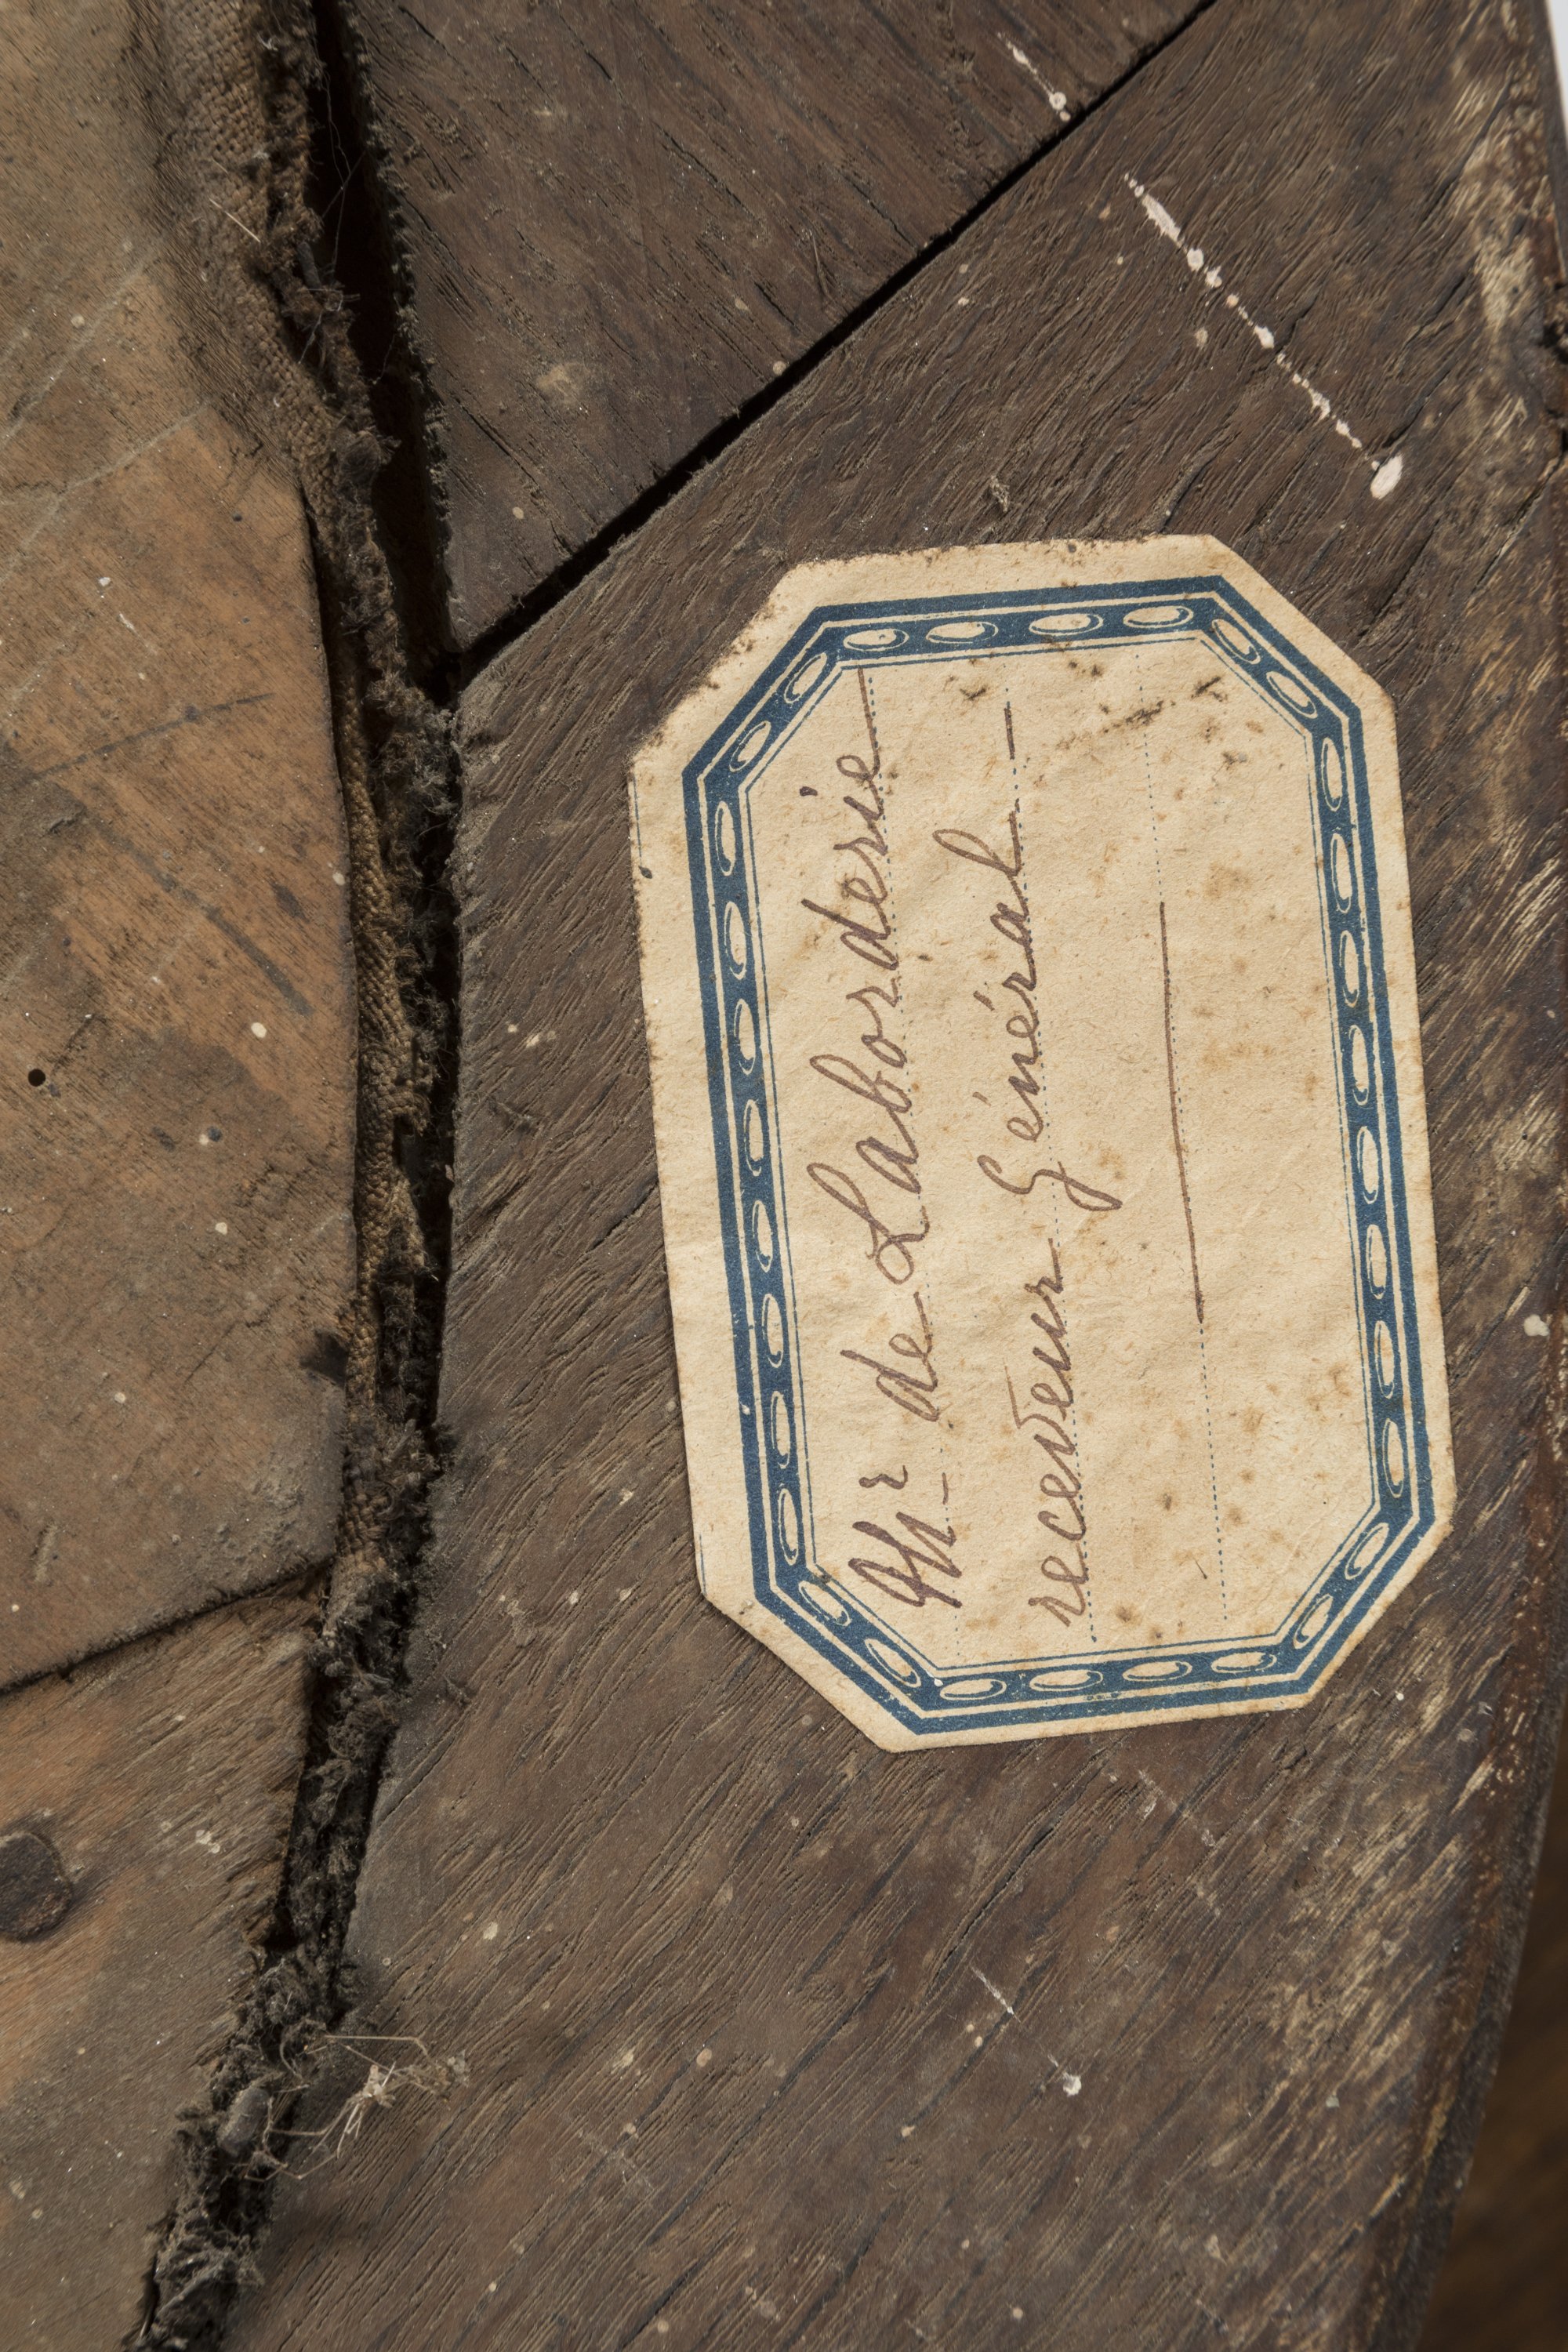 Mr de Laborderie
receveur Général